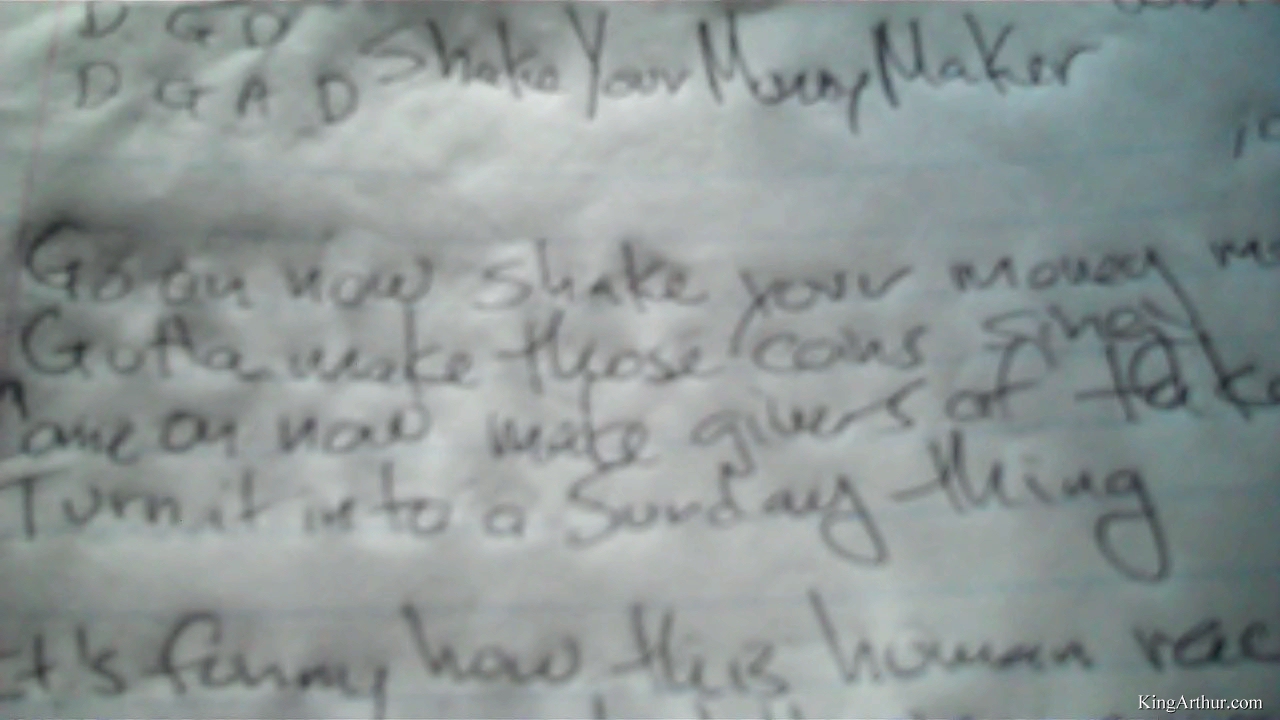 D G D
D G A D Shake Your Money Maker
Go on now shake your money
Gotta make those coins sing
Come on now make givers of
Turn it into a Sunday thing
It's funny how this human
KingArthur.com